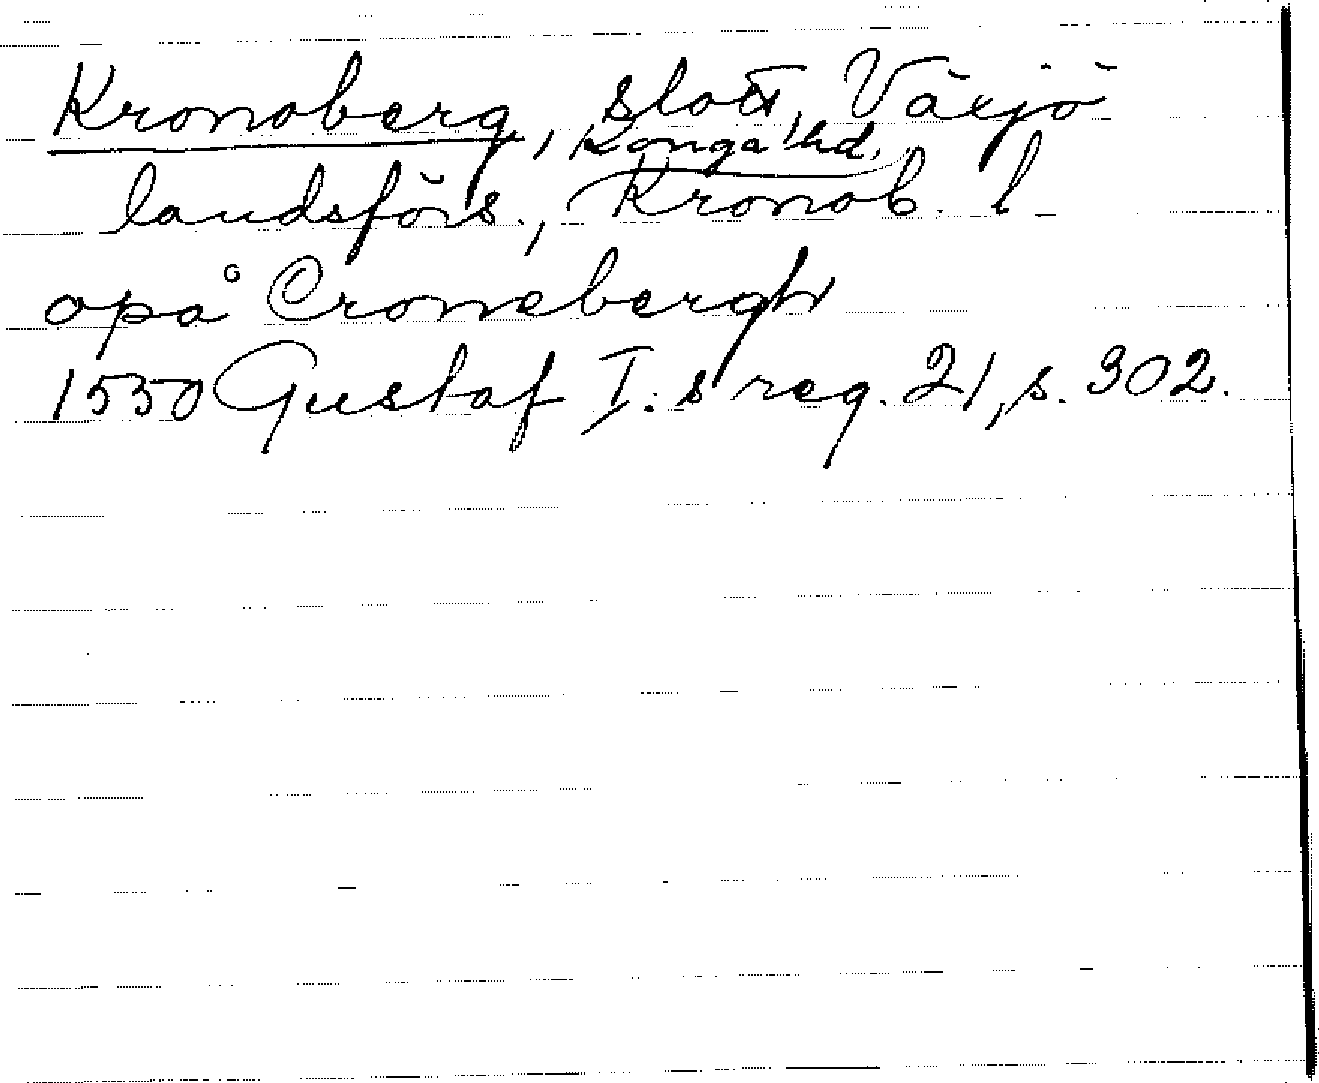 Kronoberg, slott, Växjö
Konga hd.
landsförs., Kronob. l
opå Cronebergh
1550 Gustaf I:s reg. 21, s. 302.